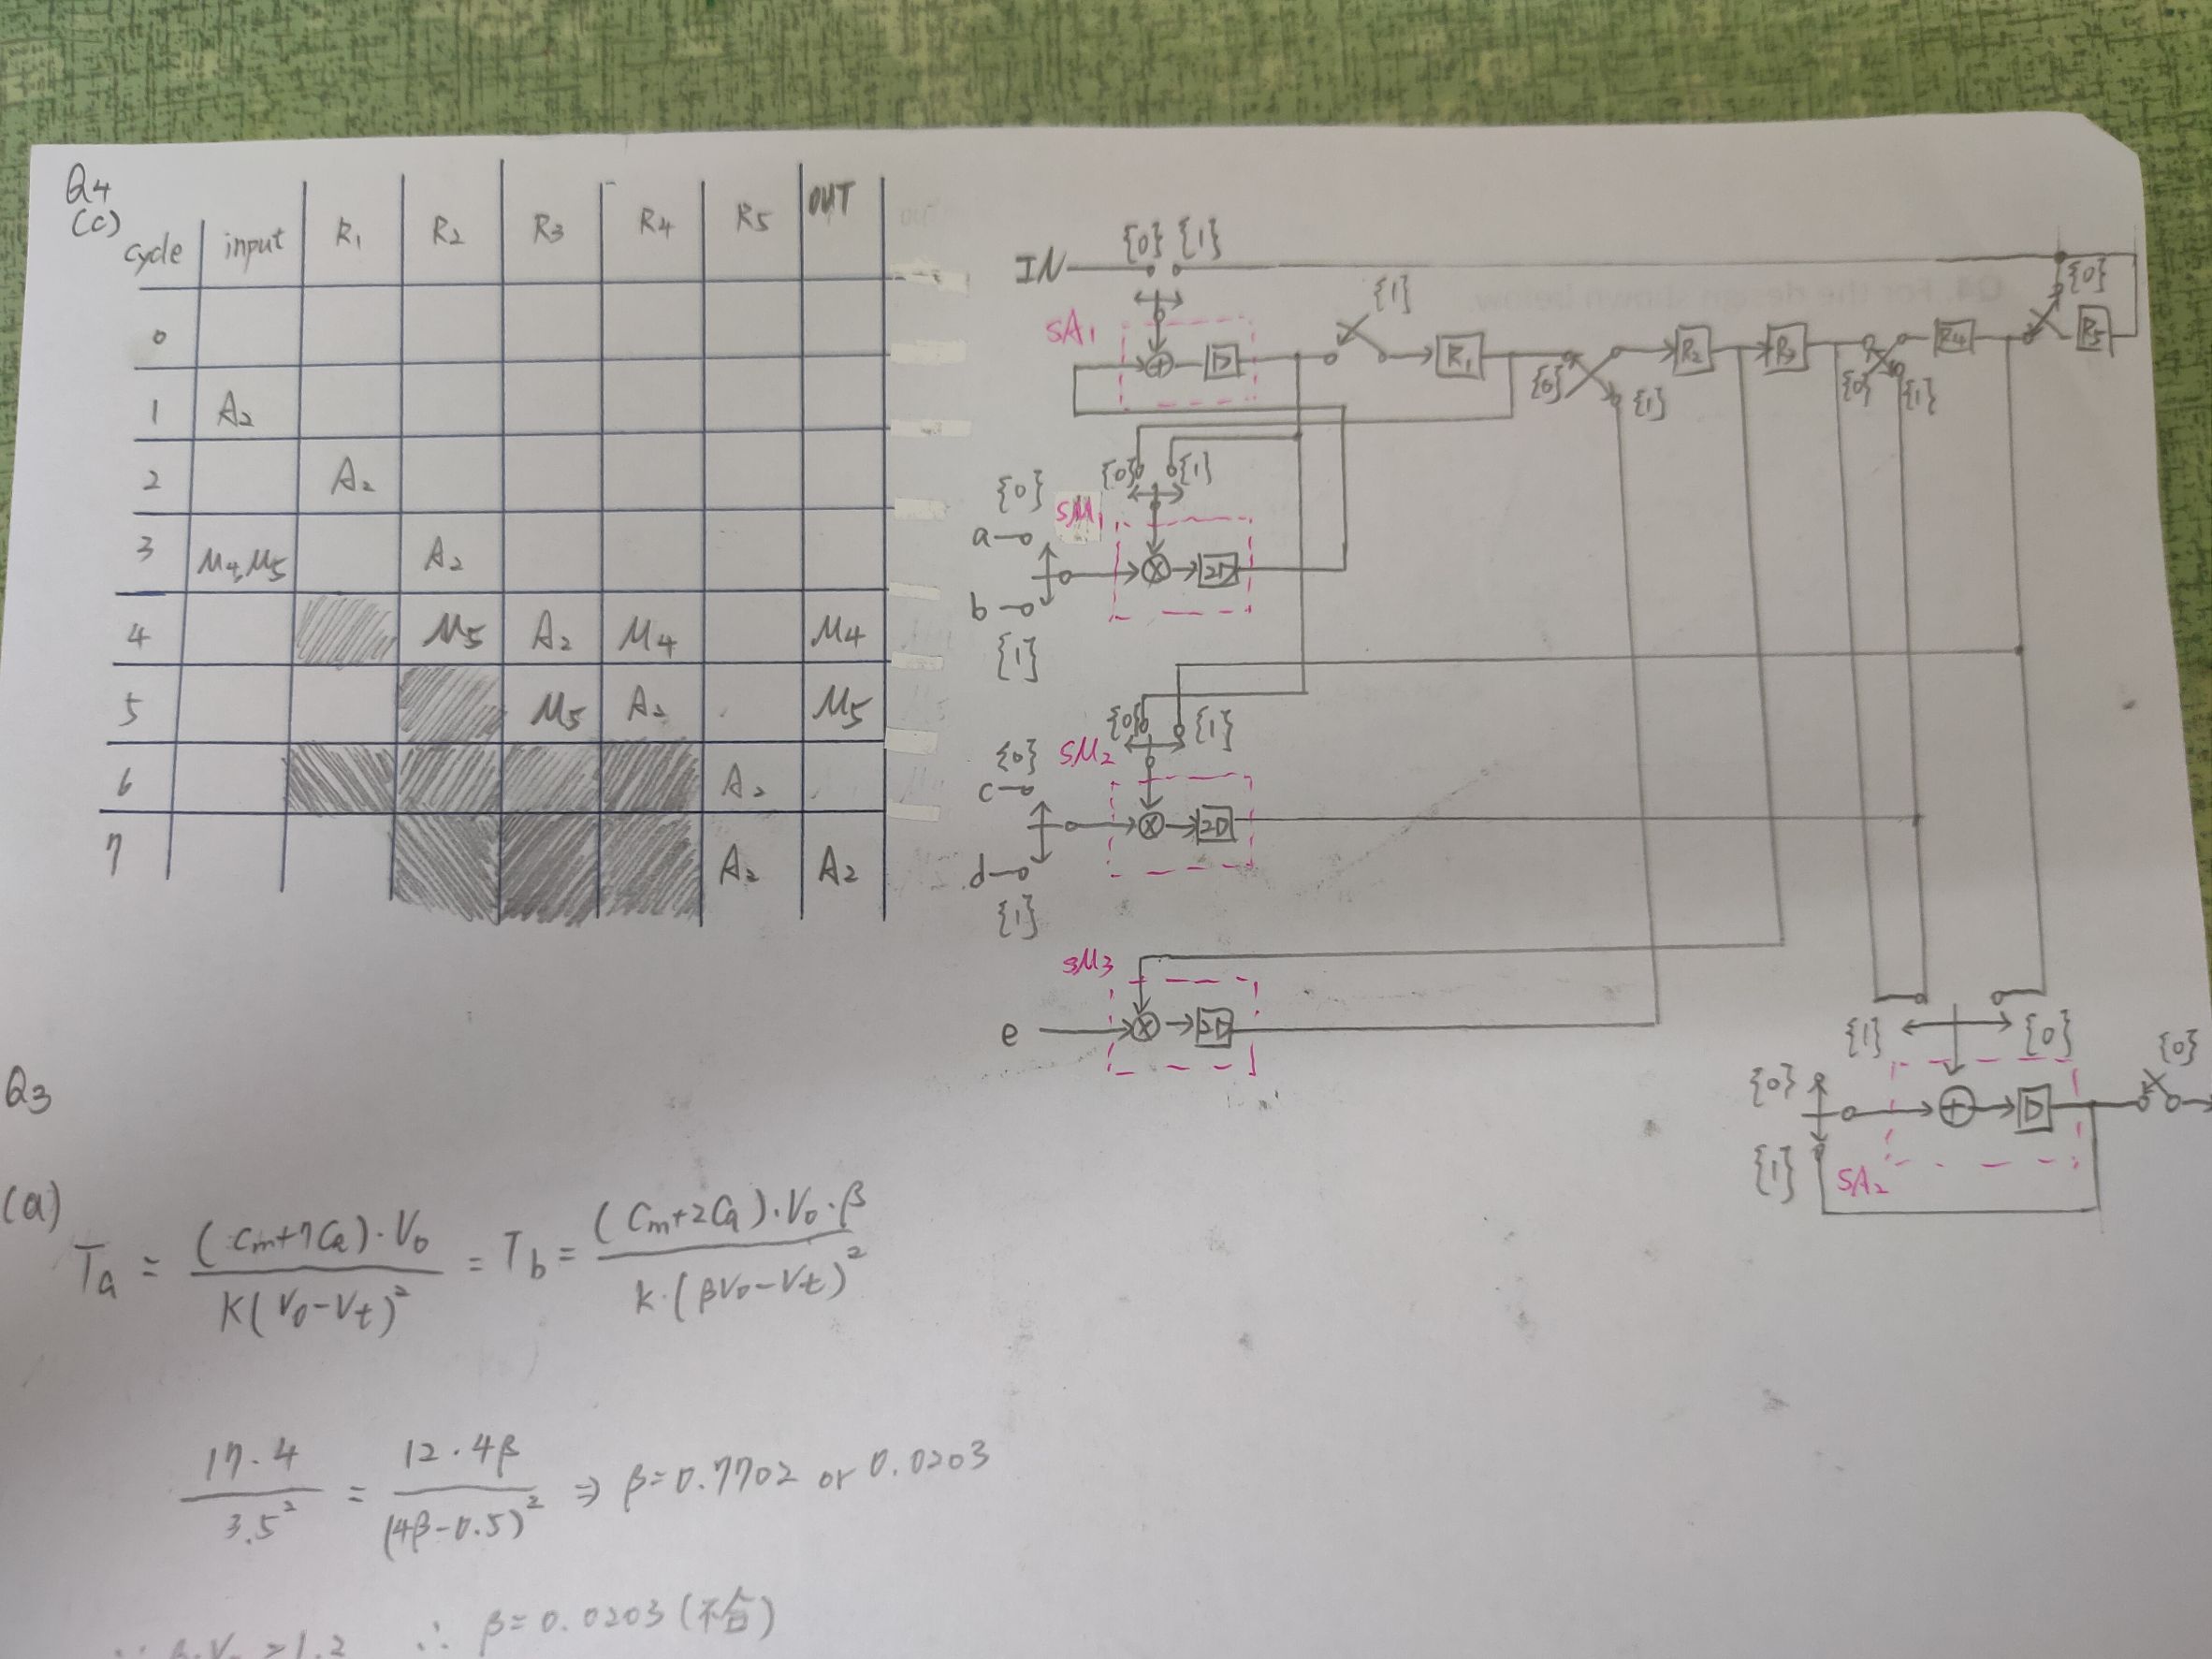 Q4
(c)
cycle input R1 R2 R3 R4 R5 OUT
0
1 A2
2 A2
3 M4,M5 A2
4 M5 A2 M4 M4
5 M5 A2 M5
6 A2
7 A2 A2
IN {0} {1}
SA1 + D {1} R1 {0} {1} R2 R3 {0} {1} R4 {0} R5
{0} {1}
{0}
a SM1
⊗ 2D
b
{1}
{0} {1}
{0} SM2
c
⊗ 2D
d
{1}
SM3
e ⊗ 2D
{1} {0}
{0} + D {0}
{1} SA2
Q3
(a) Ta = (Cm+7Ca)·V0 / K(V0-Vt)² = Tb = (Cm+2Ca)·V0·β / K·(βV0-Vt)²
17·4 / 3.5² = 12·4β / (4β-0.5)² ⇒ β=0.7702 or 0.0203
∴ β=0.0203 (不合)